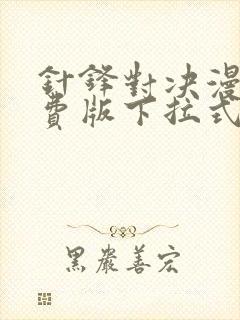 針鋒對决漫
費版下拉式
黑巖善宏